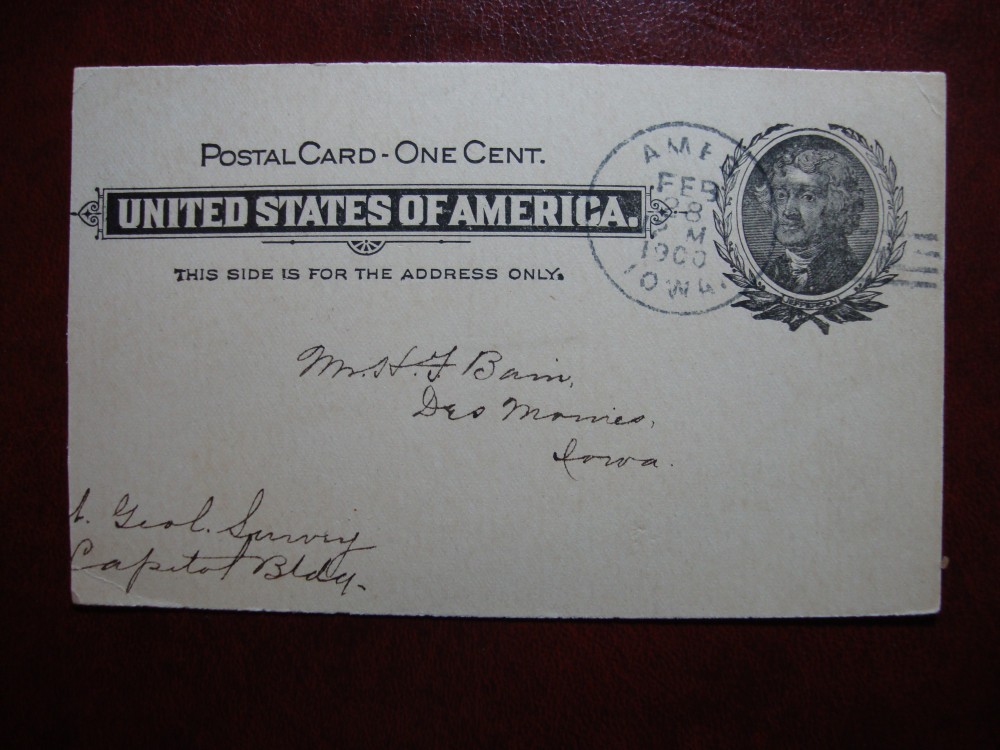 POSTAL CARD - ONE CENT.
UNITED STATES OF AMERICA.
THIS SIDE IS FOR THE ADDRESS ONLY.
AME
FEB
28
M
1900
IOWA.
JEFFERSON
Mr. H. F. Bain,
Des Moines,
Iowa.
t. Geol. Survey
Capitol Bldg.